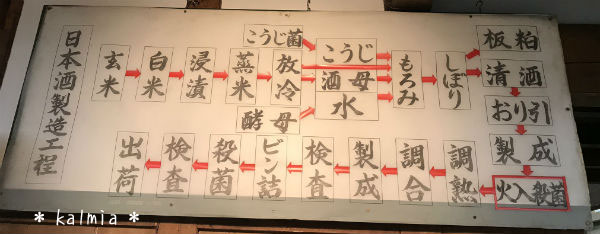 日本酒製造工程
玄米
白米
浸漬
蒸米
放冷
こうじ菌
こうじ
酒母
水
酵母
もろみ
しぼり
板粕
清酒
おり引
製成
火入殺菌
調熟
調合
製成
検査
ビン詰
殺菌
検査
出荷
* kalmia *